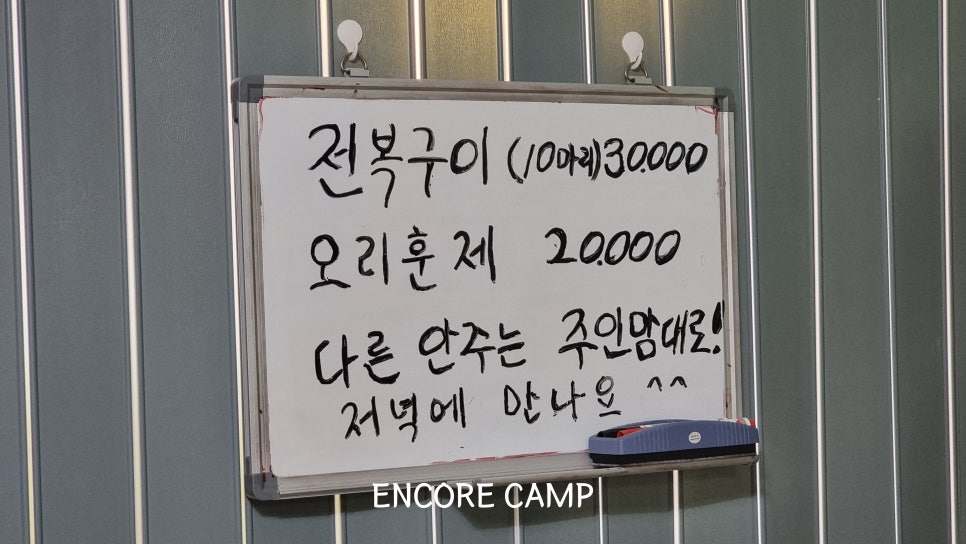 전복구이 (10마리)30.000
오리훈제 20.000
다른 안주는 주인맘대로!
저녁에 만나요 ^^
ENCORE CAMP